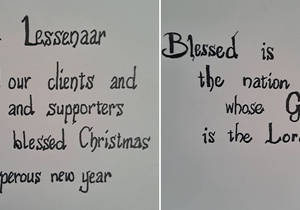 Lessenaar
our clients and
and supporters
blessed Christmas
perous new year
Blessed is
the nation
whose G
is the Lor